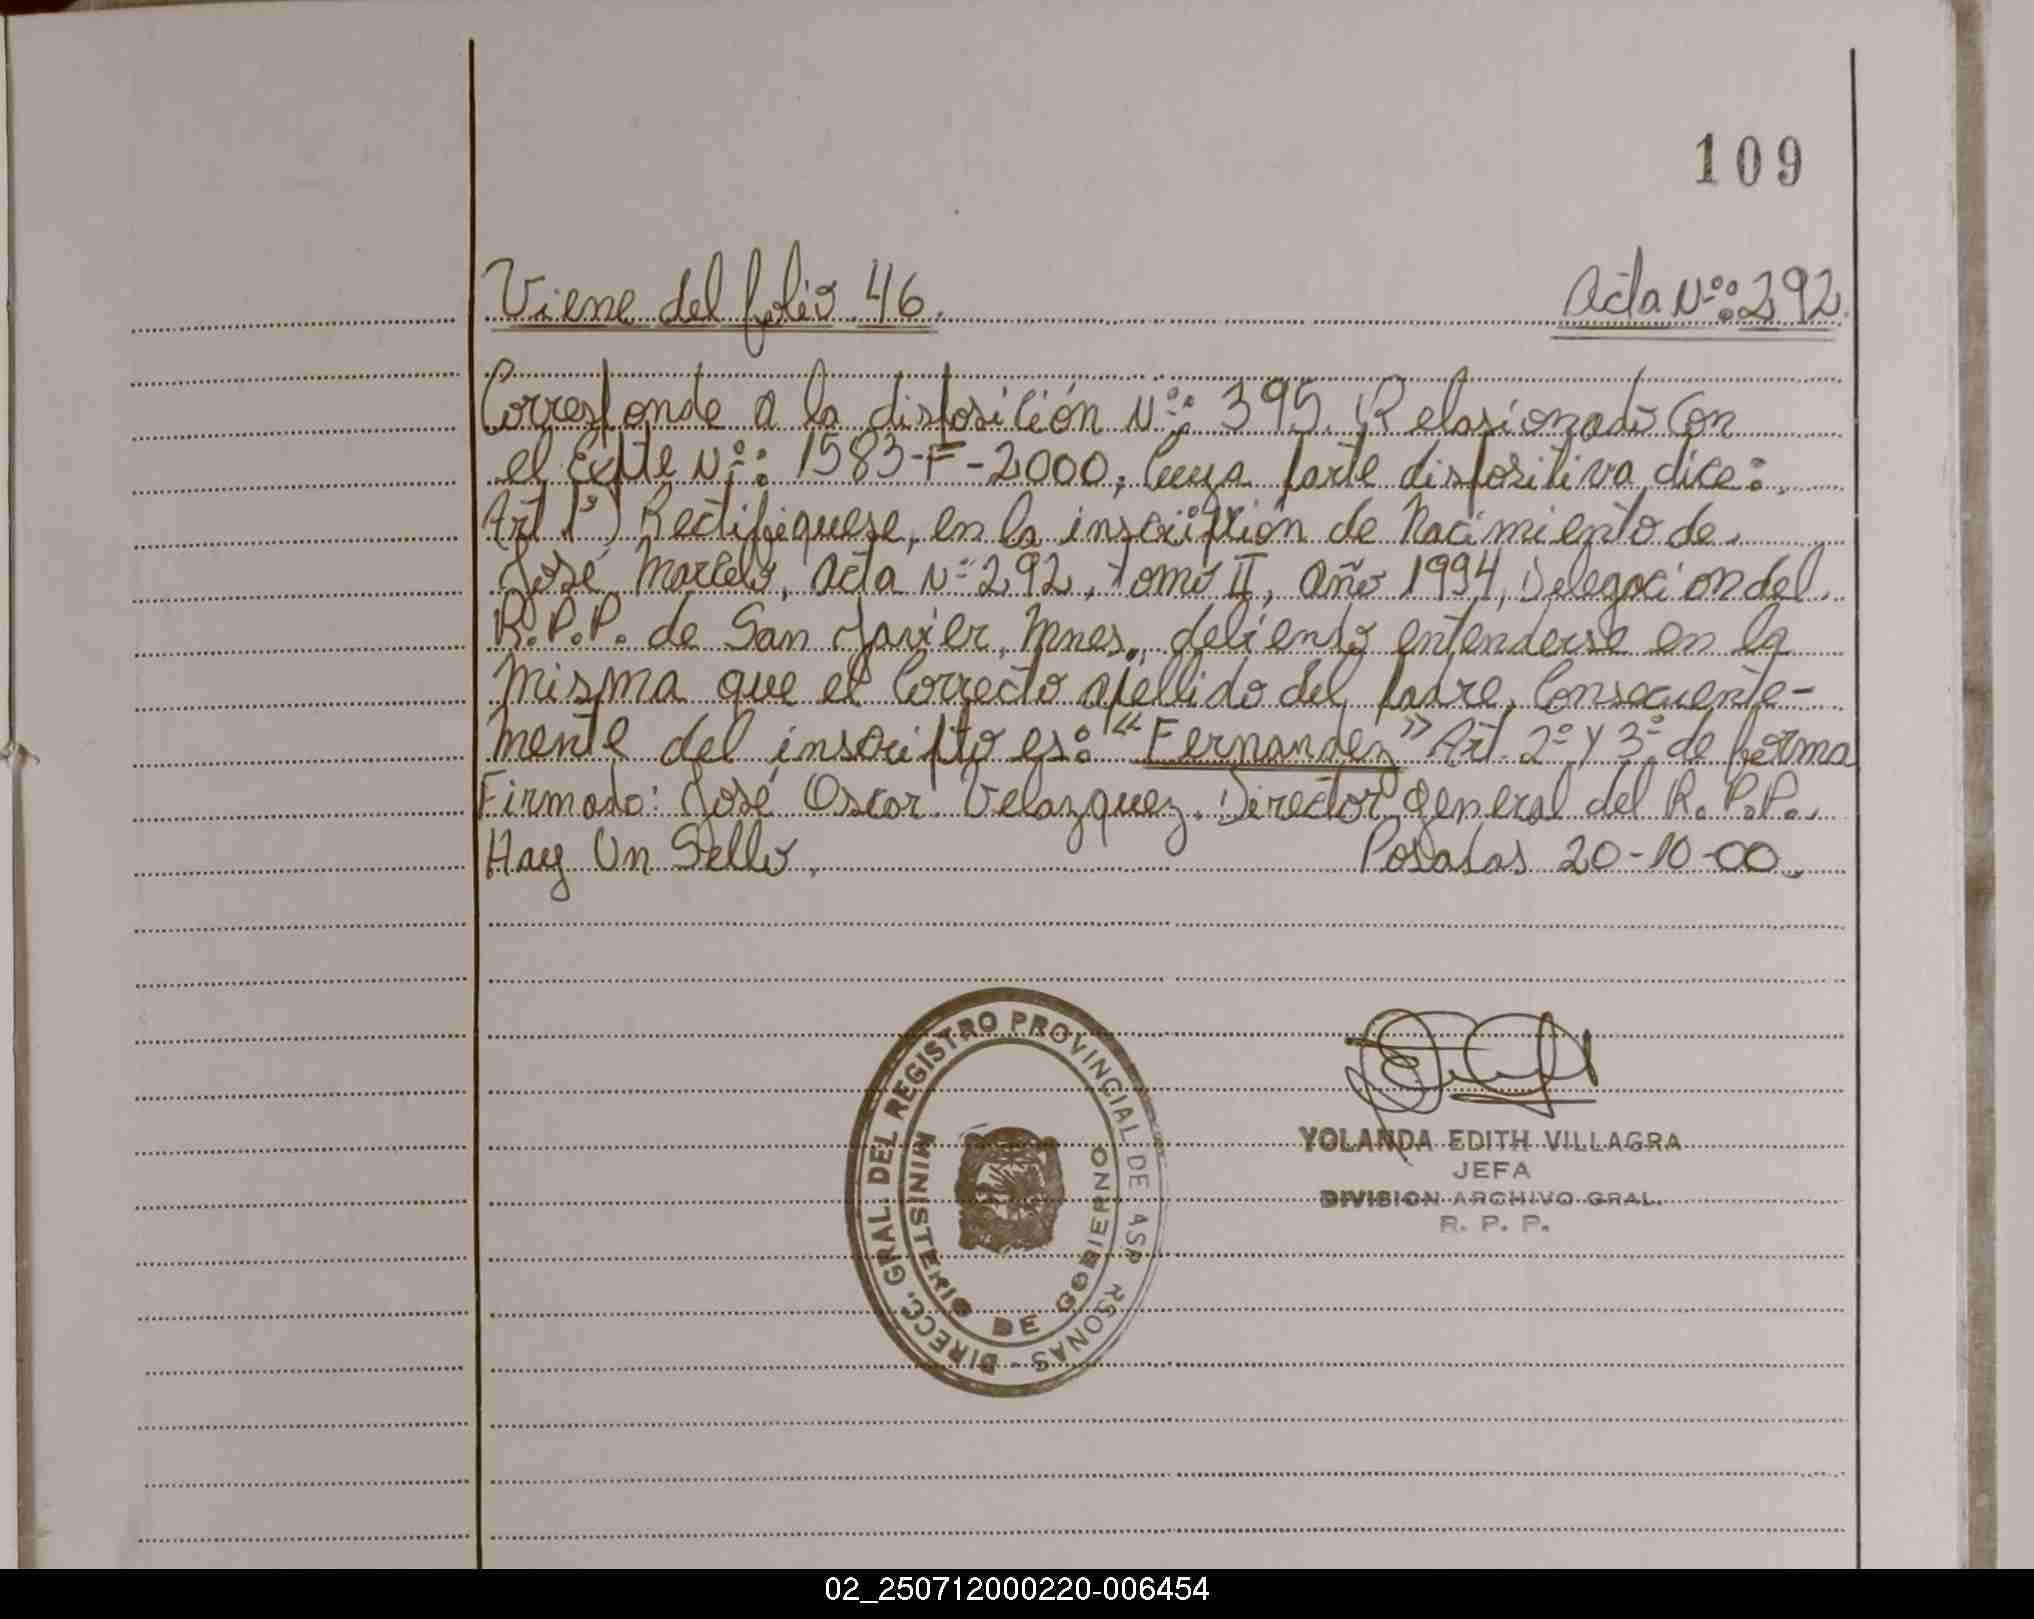 109
Viene del folio 46. Acta Nº: 292.
Corresponde a la disposición Nº: 395. Relasionado Con
el Expte Nº: 1583-F-2000, Cuya parte dispositiva dice:
Art 1º) Rectifíquese, en la inscripción de Nacimiento de
José Marcelo, Acta Nº 292, Tomo II, Año 1994, Delegación del
R.P.P. de San Javier, Mnes., debiendo entenderse en la
misma que el Correcto apellido del padre, Consecuente-
mente del inscripto es: "Fernandez" Art. 2º y 3º de forma
Firmado: José Oscar Velazquez. Director general del R.P.P.
Hay Un Sello. Posadas 20-10-00.
DIRECC. GRAL. DEL REGISTRO PROVINCIAL DE ASP RSONAS -
MINISTERIO DE GOBIERNO
YOLANDA EDITH VILLAGRA
JEFA
DIVISION ARCHIVO GRAL.
R. P. P.
02_250712000220-006454